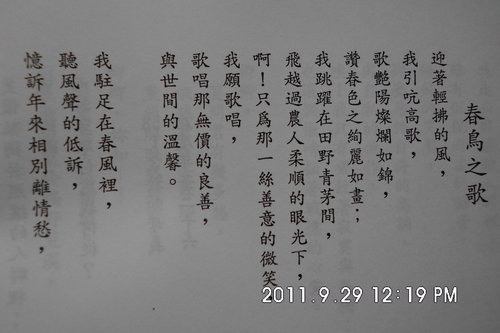 春鳥之歌
迎著輕拂的風,
我引吭高歌,
歌艷陽燦爛如錦,
讚春色之絢麗如畫;
我跳躍在田野青茅間,
飛越過農人柔順的眼光下,
啊!只為那一絲善意的微笑
我願歌唱,
歌唱那無價的良善,
與世間的溫馨。
我駐足在春風裡,
聽風聲的低訴,
憶訴年來相別離情愁,
2011.9.29 12:19 PM